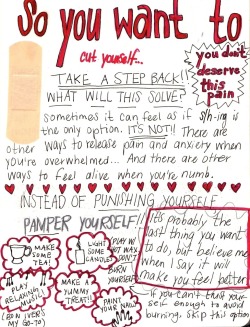 So you want to
cut yourself...
you don't
deserve
this
pain
TAKE A STEP BACK!!
WHAT WILL THIS SOLVE?
Sometimes it can feel as if s/h-ing is
the only option. IT'S NOT!! There are
other ways to release pain and anxiety when
you're overwhelmed... And there are other
ways to feel alive when you're numb.
INSTEAD OF PUNISHING YOURSELF
PAMPER YOURSELF!!
MAKE
SOME
TEA!
LIGHT
SOME
CANDLES
PLAY W/
HOT WAX
DON'T
BURN
YOURSELF
PLAY
RELAXING
MUSIC
(BON IVER'S
MY GO-TO)
MAKE A
YUMMY
TREAT!!
PAINT
YOUR
NAILS
It's probably the
last thing you want
to do, but believe me
when I say it will
make you feel better
if you can't trust your
self enough to avoid
burning. Skip this option